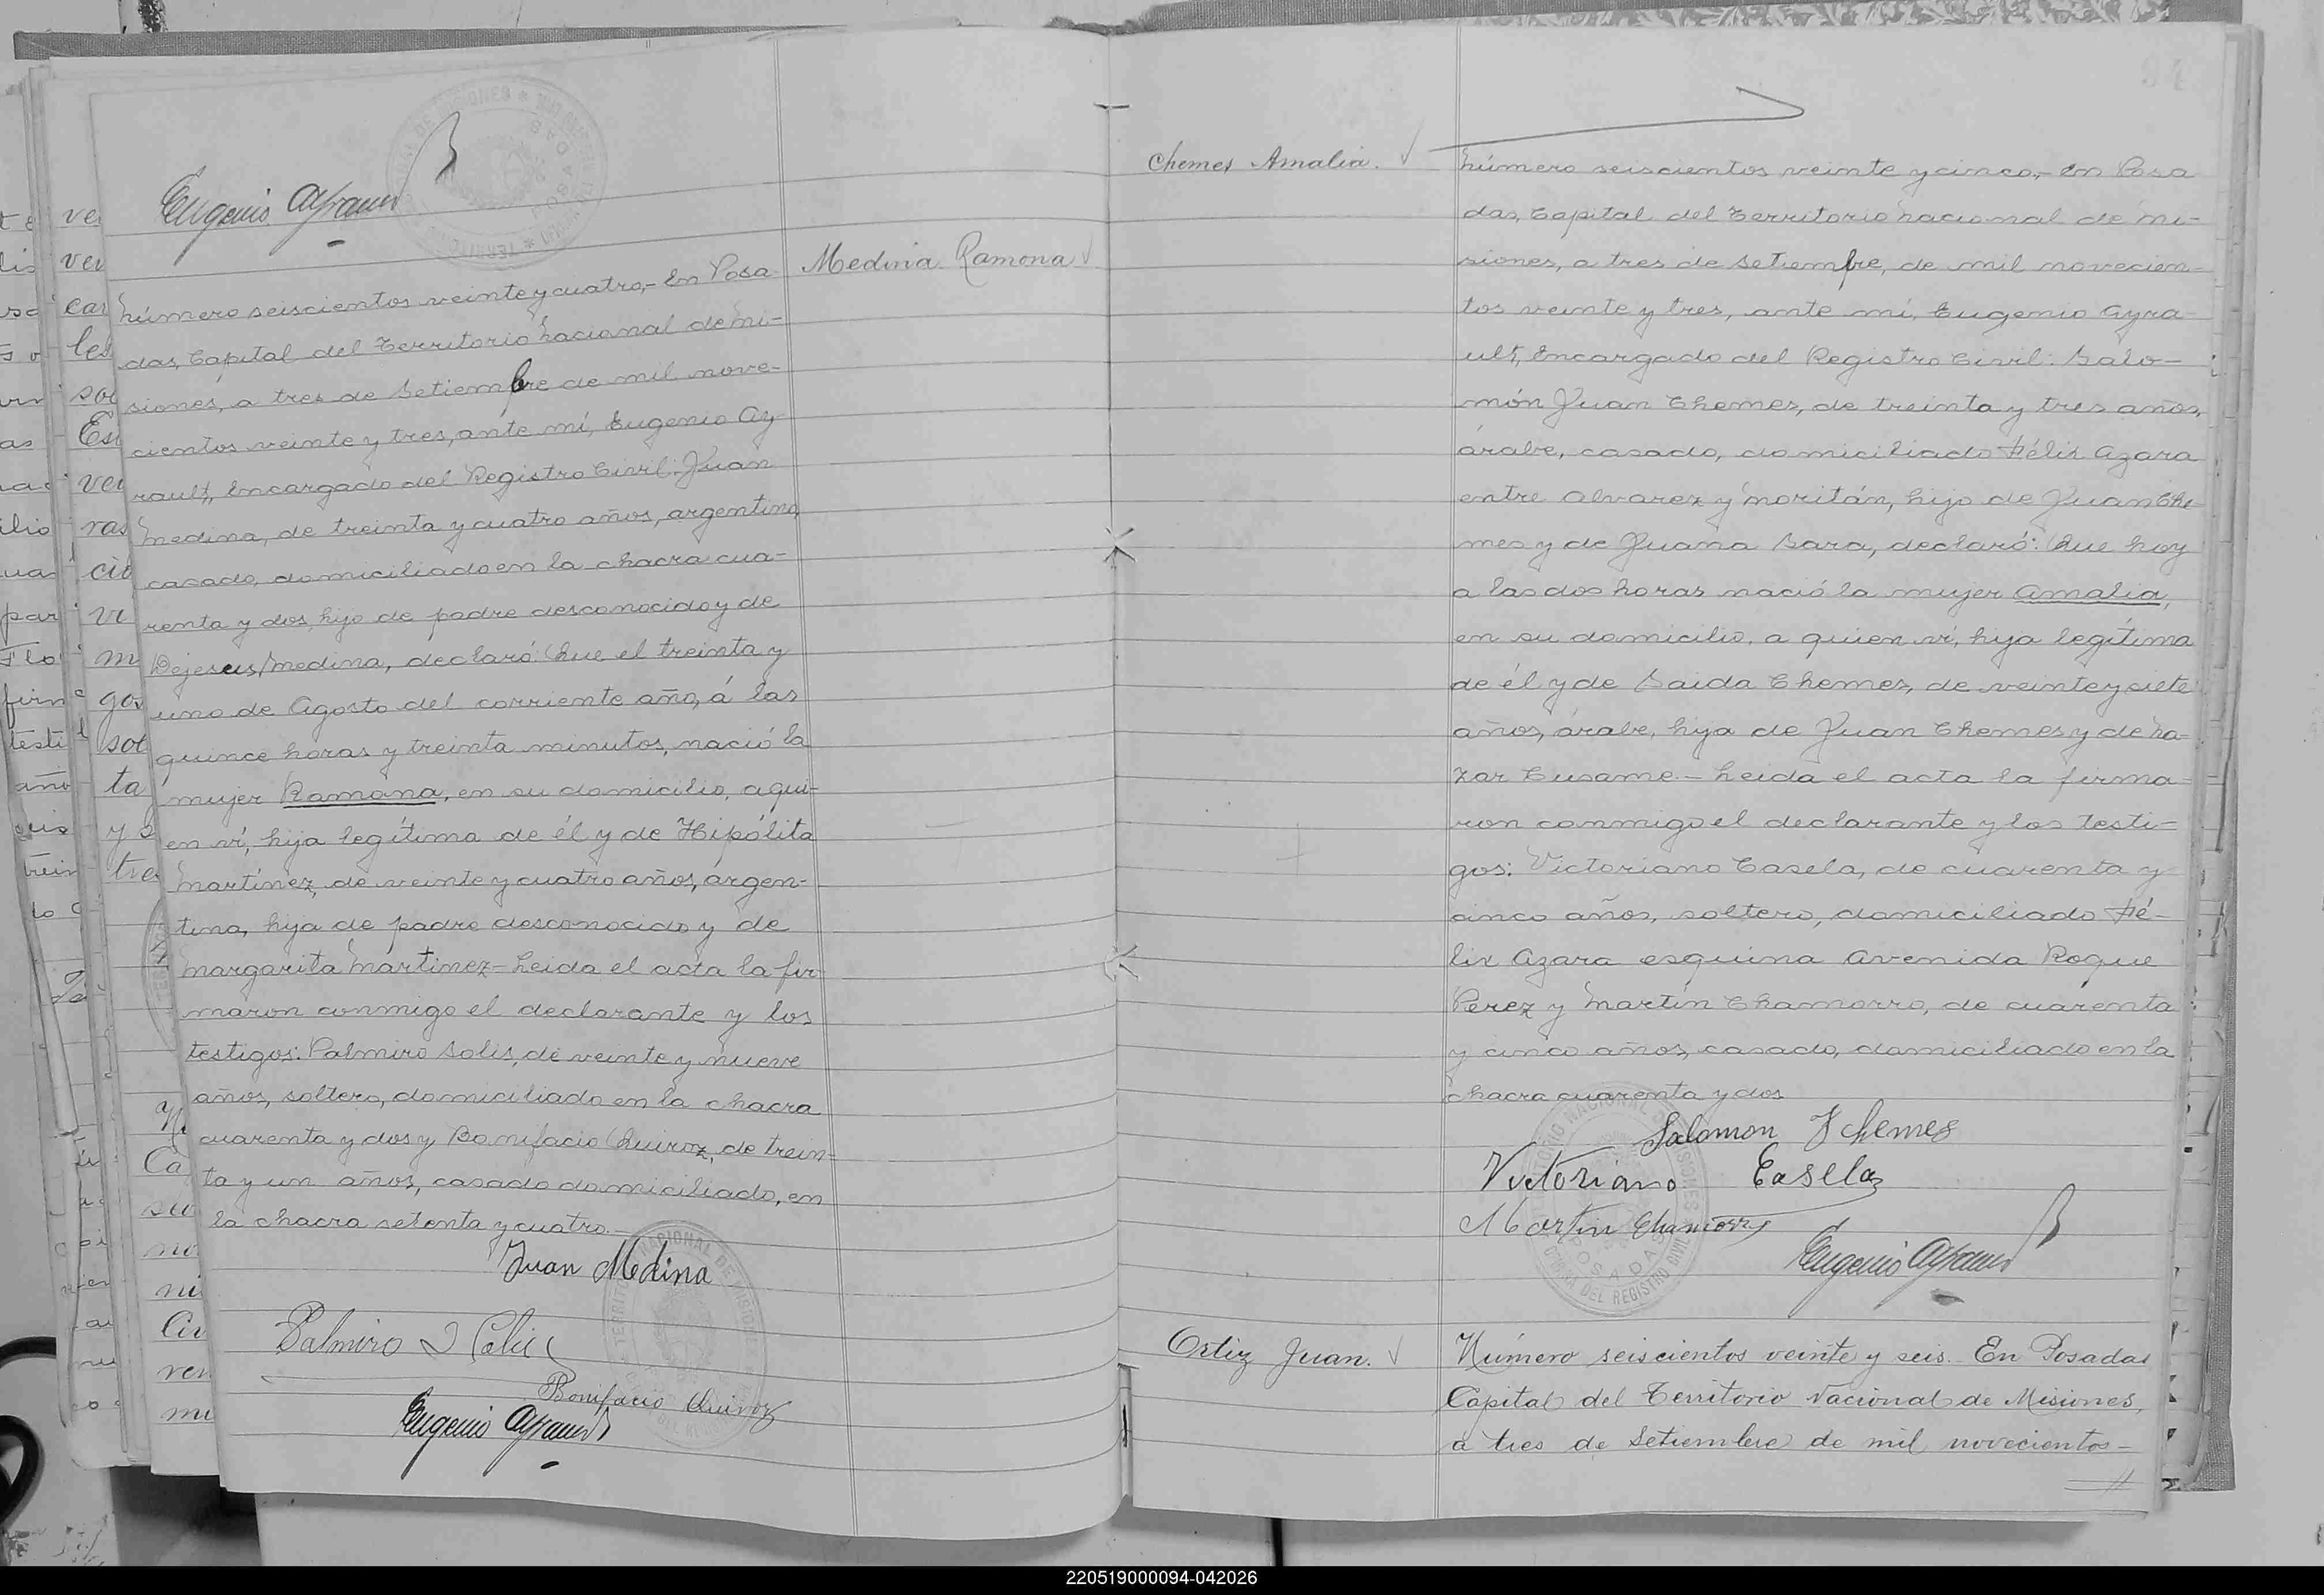 Eugenio Ayrault
Medina Ramona
Número seiscientos veinte y cuatro,- En Posa-
das, Capital del Territorio Nacional de Mi-
siones, a tres de Setiembre de mil nove-
cientos veinte y tres, ante mí, Eugenio Ay
rault, Encargado del Registro Civil: Juan
Medina, de treinta y cuatro años, argentino,
casado, domiciliado en la chacra cua-
renta y dos, hijo de padre desconocido y de
Dejesus Medina, declaró: Que el treinta y
uno de Agosto del corriente año, á las
quince horas y treinta minutos, nació la
mujer Ramona, en su domicilio, a qui-
en ví, hija legítima de él y de Hipólita
Martínez, de veinte y cuatro años, argen-
tina, hija de padre desconocido y de
Margarita Martinez- Leida el acta la fir-
maron conmigo el declarante y los
testigos: Palmiro Solis, de veinte y nueve
años, soltero, domiciliado en la chacra
cuarenta y dos y Bonifacio Quiroz, de trein-
ta y un años, casado domiciliado, en
la chacra setenta y cuatro.-
Juan Medina
Palmiro
Bonifacio Quiroz
Eugenio Ayrault
Chemes Amalia.
Número seiscientos veinte y cinco,- En Posa
das, Capital del Territorio Nacional de Mi-
siones, a tres de Setiembre, de mil novecien-
tos veinte y tres, ante mí, Eugenio Ayra
ult, Encargado del Registro Civil: Salo-
món Juan Chemes, de treinta y tres años,
árabe, casado, domiciliado Félix Azara
entre Alvarez y Moritán, hijo de Juan Che
mes y de Juana Sara, declaró: Que hoy
a las dos horas nació la mujer Amalia,
en su domicilio, a quien ví, hija legítima
de él y de Saida Chemes, de veinte y siete
años, árabe, hija de Juan Chemes y de Na-
zar Cusame.- Leida el acta la firma-
ron conmigo el declarante y los testi-
gos: Victoriano Casela, de cuarenta y
cinco años, soltero, domiciliado Fé-
lix Azara esquina Avenida Roque
Perez y Martín Chamorro, de cuarenta
y cinco años, casado, domiciliado en la
chacra cuarenta y dos
Salomon J Chemes
Victoriano Casella
Martin Chamorro
Eugenio Ayrault
Ortiz Juan.
Número seiscientos veinte y seis. En Posadas
Capital del Territorio Nacional de Misiones,
a tres de Setiembre de mil novecientos-
220519000094-042026